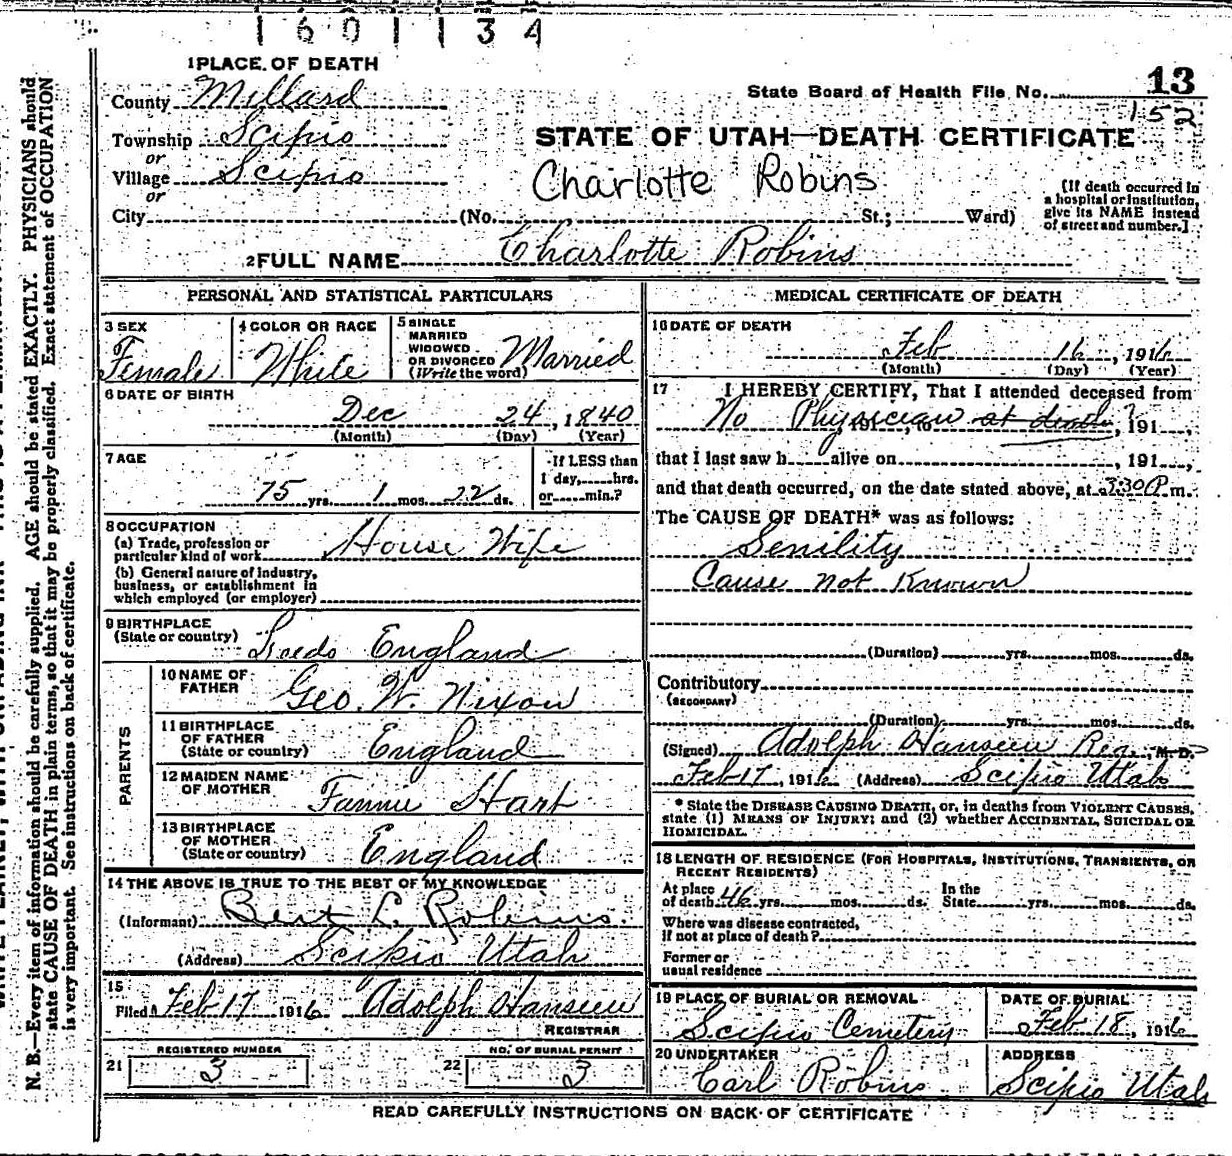 1 6 0 1 1 3 4
13
1 PLACE OF DEATH
County Millard
State Board of Health File No.
152
Township Scipio
or
Village Scipio
or
City (No. St.; Ward)
STATE OF UTAH—DEATH CERTIFICATE
Charlotte Robins
[If death occurred in
a hospital or institution,
give its NAME instead
of street and number.]
2 FULL NAME Charlotte Robins
PERSONAL AND STATISTICAL PARTICULARS
3 SEX
Female
4 COLOR OR RACE
White
5 SINGLE
MARRIED
WIDOWED
OR DIVORCED
(Write the word)
Married
6 DATE OF BIRTH
Dec 24, 1840
(Month) (Day) (Year)
7 AGE
75 yrs. 1 mos. 22 ds.
If LESS than
1 day, hrs.
or min.?
8 OCCUPATION
(a) Trade, profession or
particular kind of work House Wife
(b) General nature of industry,
business, or establishment in
which employed (or employer)
9 BIRTHPLACE
(State or country) Leeds England
PARENTS
10 NAME OF
FATHER Geo. W. Nixon
11 BIRTHPLACE
OF FATHER
(State or country) England
12 MAIDEN NAME
OF MOTHER Fannie Hart
13 BIRTHPLACE
OF MOTHER
(State or country) England
14 THE ABOVE IS TRUE TO THE BEST OF MY KNOWLEDGE
(Informant) Bert L. Robins.
(Address) Scipio Utah
15
Filed Feb 17 1916 Adolph Hansen
REGISTRAR
REGISTERED NUMBER
21 3
NO. OF BURIAL PERMIT
22 3
MEDICAL CERTIFICATE OF DEATH
16 DATE OF DEATH
Feb 16, 1916
(Month) (Day) (Year)
17 I HEREBY CERTIFY, That I attended deceased from
No Physician at death, 191
that I last saw h alive on , 191
and that death occurred, on the date stated above, at 3:30 P m.
The CAUSE OF DEATH* was as follows:
Senility
Cause not Known
(Duration) yrs. mos. ds.
Contributory
(SECONDARY)
(Duration) yrs. mos. ds.
(Signed) Adolph Hansen Reg. M. D.
Feb 17, 1916 (Address) Scipio Utah
* State the DISEASE CAUSING DEATH, or, in deaths from VIOLENT CAUSES,
state (1) MEANS OF INJURY; and (2) whether ACCIDENTAL, SUICIDAL OR
HOMICIDAL.
18 LENGTH OF RESIDENCE (FOR HOSPITALS, INSTITUTIONS, TRANSIENTS, OR
RECENT RESIDENTS)
At place
of death 46 yrs. mos. ds.
In the
State yrs. mos. ds.
Where was disease contracted,
if not at place of death?
Former or
usual residence
19 PLACE OF BURIAL OR REMOVAL
Scipio Cemetery
DATE OF BURIAL
Feb 18, 1916
20 UNDERTAKER
Carl Robins
ADDRESS
Scipio Utah
READ CAREFULLY INSTRUCTIONS ON BACK OF CERTIFICATE
N. B.—Every item of information should be carefully supplied. AGE should be stated EXACTLY. PHYSICIANS should
state CAUSE OF DEATH in plain terms, so that it may be properly classified. Exact statement of OCCUPATION
is very important. See instructions on back of certificate.